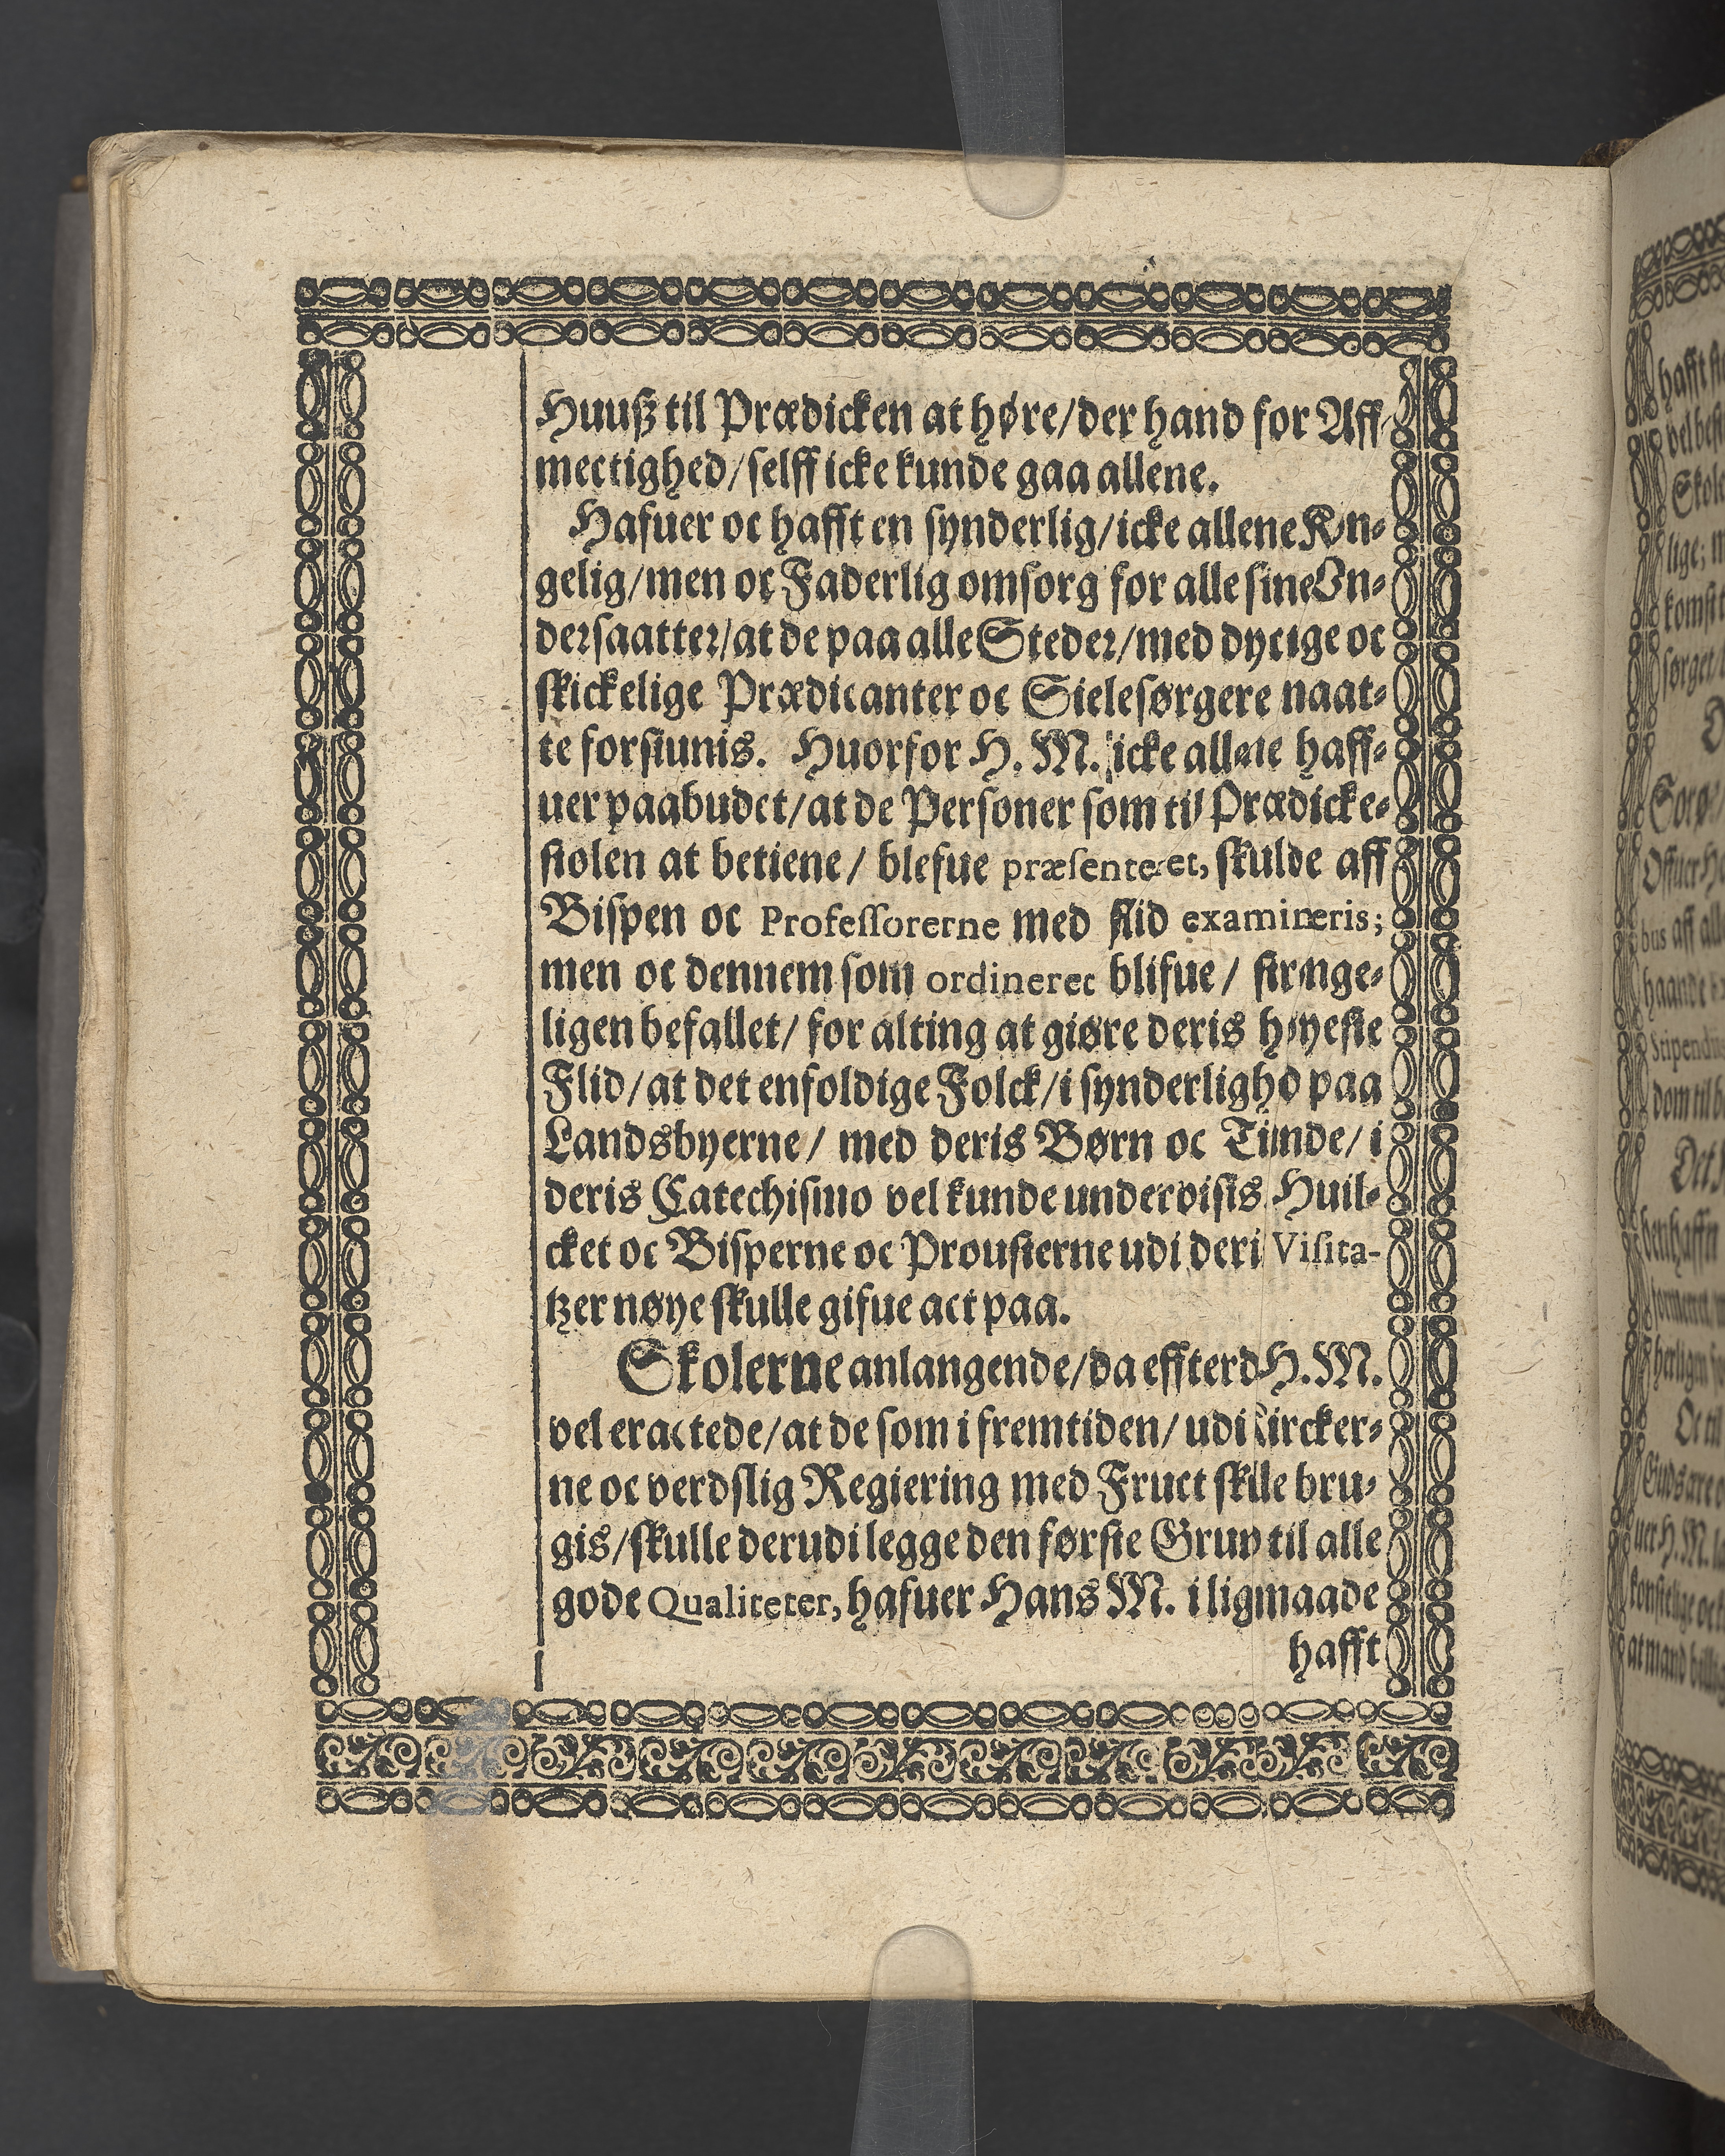 Huusz til Prædicken at høre/der hand for Aff-
mectighed/selff icke kunde gaa allene.
Hafuer oc hafft en synderlig/icke allene Kon-
gelig/men oc Faderlig omsorg for alle sine Un-
dersaatter/at de paa alle Steder/med dyctige oc
skickelige Prædicanter oc Sielesørgere naat-
te forsiunis. Huorfor H. M. icke allene haff-
uer paabudet/at de Personer som til Prædicke-
stolen at betiene/ blefue præsenteret, skulde aff
Bispen oc Professorerne med flid examineris;
men oc dennem som ordineret blifue/ strenge-
ligen befallet/ for alting at giøre deris høyeste
Flid/at det enfoldige Folck/i synderlighd paa
Landsbyerne/ med deris Børn oc Tiunde/ i
deris Catechismo vel kunde undervisis Huil-
cket oc Bisperne oc Proufterne udi deri Visita-
tzer nøye skulle gifue act paa.
Skolerne anlangende/da effterd H. M.
vel eractede/at de som i fremtiden/ udi Kircker-
ne oc verdslig Regiering med Fruct skulle bru-
gis/skulle derudi legge den første Grund til alle
gode Qualiteter, hafuer Hans M. i ligmaade
hafft
hafft
vel
Skole
lige;
sørget
Sorø
Offuer
bus aff all
haande
dom til
Det
Oc til
Guds
uer H. M.